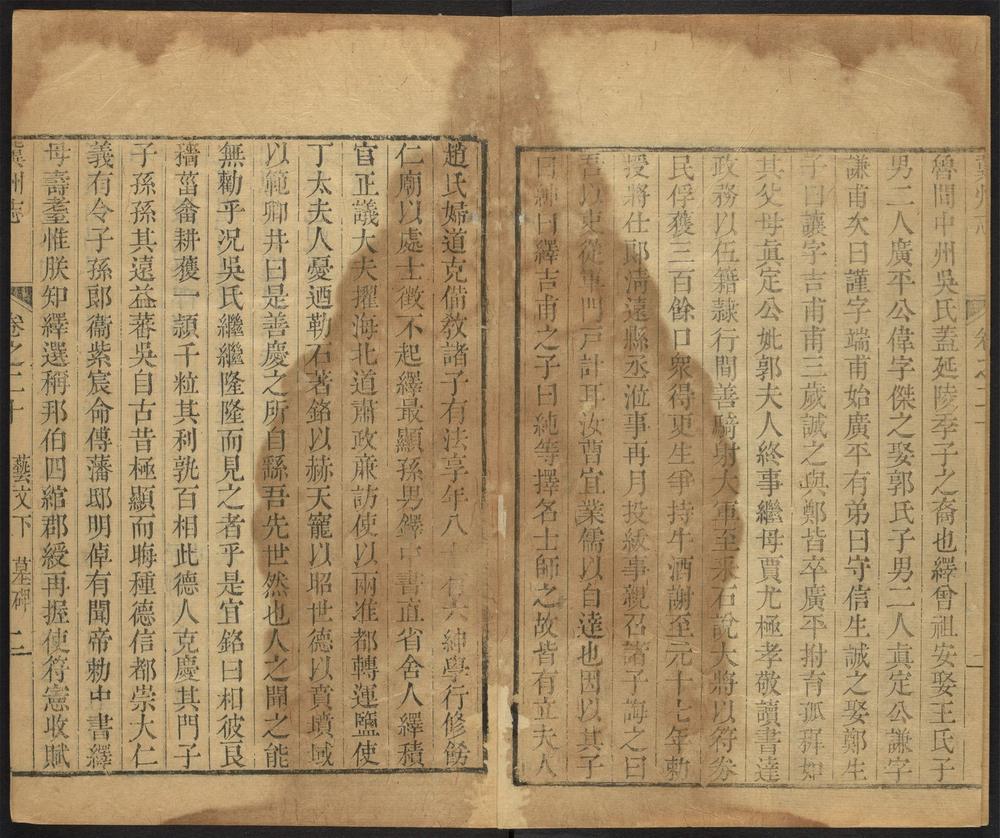 魯間中州吳氏蓋延陵季子之裔也繹曾祖安娶王氏子
男二人廣平公偉字傑之娶郭氏子男二人真定公謙字
謙甫次曰謹字端甫始廣平有弟曰守信生誠之娶鄭生
子曰讓字吉甫甫三歲誠之與鄭皆卒廣平拊育孤穉如
其父母真定公妣郭夫人終事繼母賈尤極孝敬讀書達
政務以伍籍隸行間善騎射大軍至采石說大將以符券
民俘獲三百餘口衆得更生爭持牛酒謝至元十七年勅
授將仕郎清遠縣丞涖事再月投紱事親召諸子誨之曰
吾以吏從軍門戸計耳汝曹宜業儒以自達也因以其子
曰紳曰繹吉甫之子曰純等擇名士師之故皆有立夫人
趙氏婦道克備敎諸子有法享年八有六紳學行修飭
仁廟以處士徵不起繹最顯孫男鐸中書直省舍人繹積
官正議大夫擢海北道肅政亷訪使以兩淮都轉運鹽使
丁太夫人憂迺勒石著銘以赫天寵以昭世德以賁墳域
以範卿井曰是善慶之所自繇吾先世然也人之聞之能
無勸乎况吳氏繼繼隆隆而見之者乎是宜銘曰相彼良
穡菑畬耕穫一頴千粒其利孰百相此德人克慶其門子
子孫孫其遠益蕃吳自古昔極顯而晦種德信都崇大仁
義有令子孫郎衞紫宸侖傅藩邸明倬有聞帝勅中書繹
母壽耋惟朕知繹選稱邦伯四綰郡綬再握使符憲收賦
冀州志 卷之二十 藝文下 墓碑 二